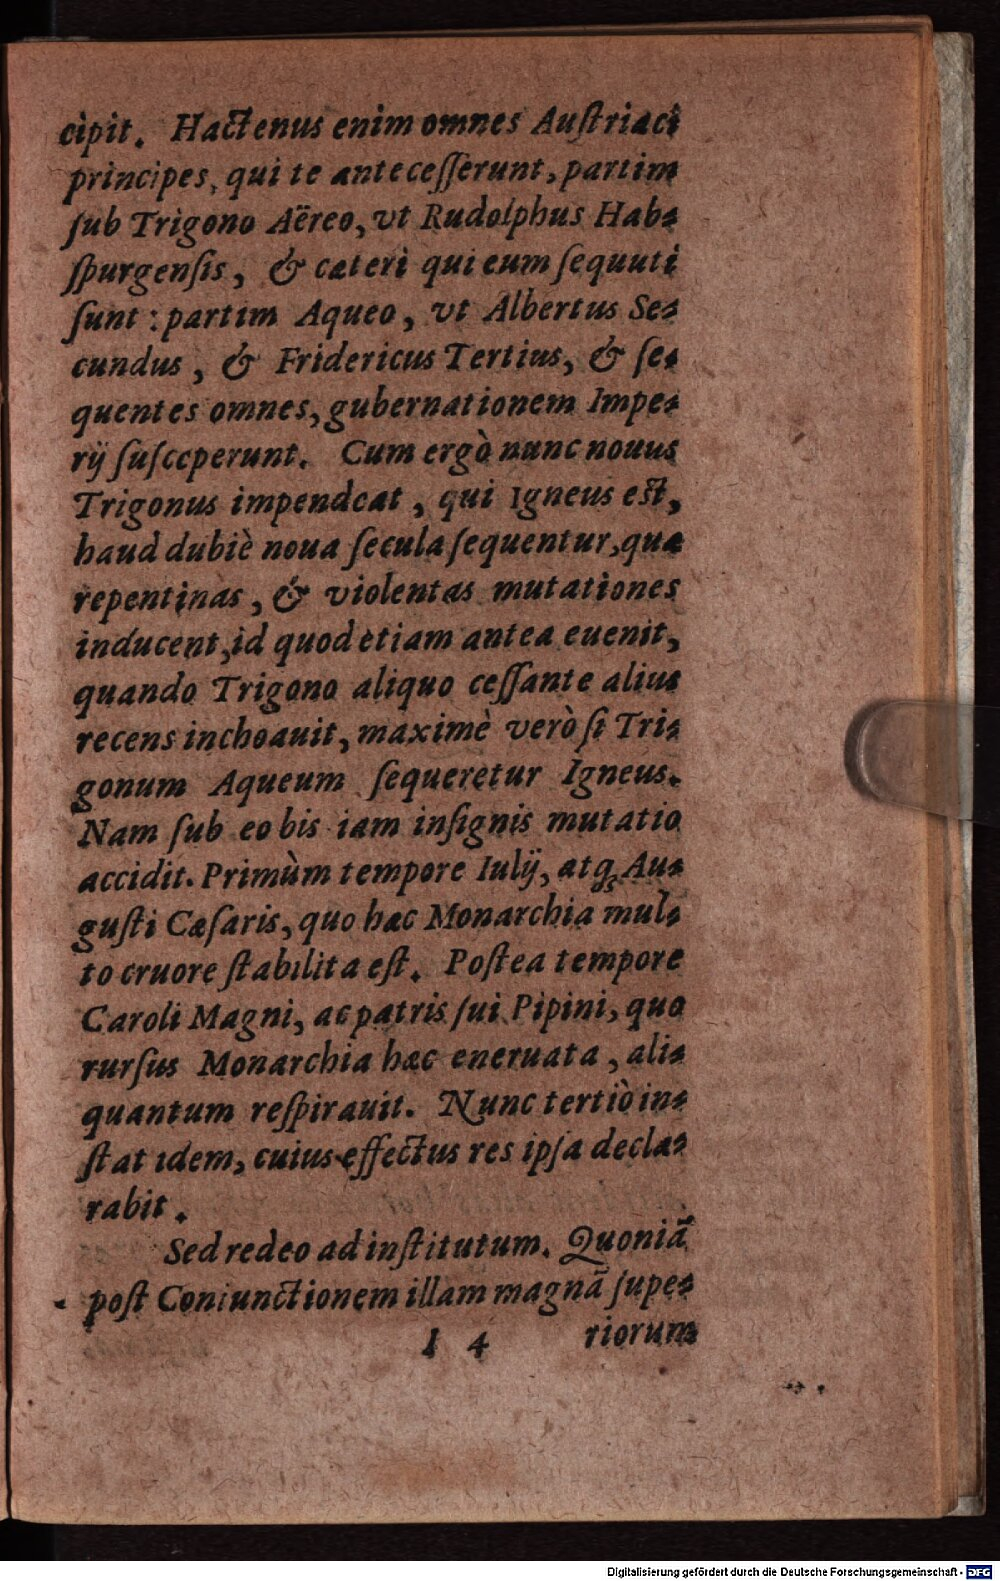 cipit. Hactenus enim omnes Auſtriaci
principes, qui te anteceſſerunt, partim
ſub Trigono Aëreo, vt Rudolphus Hab⸗
ſpurgenſis, & cæteri qui eum ſequuti
ſunt : partim Aqueo, vt Albertus Se⸗
cundus, & Fridericus Tertius, & ſe⸗
quentes omnes, gubernationem Impe⸗
rij ſuſceperunt. Cum ergò nunc nouus
Trigonus impendeat, qui Igneus eſt,
haud dubiè noua ſecula ſequentur, quæ
repentinas, & violentas mutationes
inducent, id quod etiam antea euenit,
quando Trigono aliquo ceſſante alius
recens inchoauit, maximè verò ſi Tri⸗
gonum Aqueum ſequeretur Igneus.
Nam ſub eo bis iam inſignis mutatio
accidit. Primùm tempore Iulij, atq; Au⸗
guſti Cæſaris, quo hæc Monarchia mul⸗
to cruore ſtabilita eſt. Poſtea tempore
Caroli Magni, ac patris ſui Pipini, quo
rurſus Monarchia hæc eneruata, ali⸗
quantum reſpirauit. Nunc tertiò in⸗
ſtat idem, cuius effectus res ipſa decla⸗
rabit.
Sed redeo ad inſtitutum. Quoniā
poſt Coniunctionem illam magnā ſupe⸗
I 4 riorum
Digitalisierung gefördert durch die Deutsche Forschungsgemeinschaft - DFG